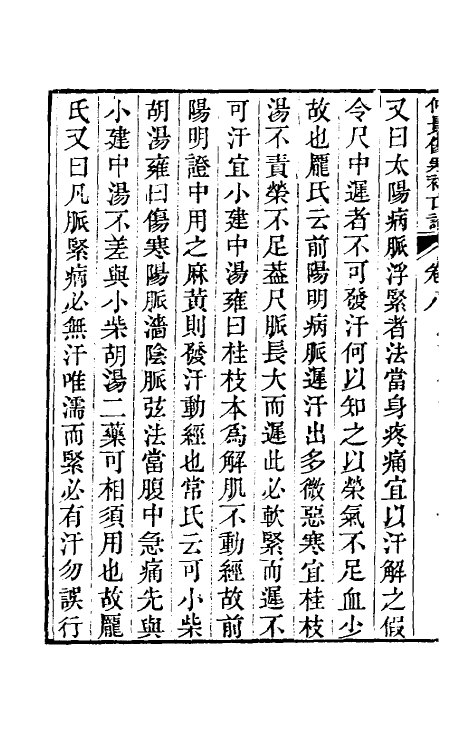 仲景傷寒補亡論 卷八
又曰太陽病脈浮緊者法當身疼痛宜以汗解之假
令尺中遲者不可發汗何以知之以榮氣不足血少
故也龐氏云前陽明病脈遲汗出多微惡寒宜桂枝
湯不責榮不足葢尺脈長大而遲此必軟緊而遲不
可汗宜小建中湯雍曰桂枝本爲解肌不動經故前
陽明證中用之麻黃則發汗動經也常氏云可小柴
胡湯雍曰傷寒陽脈濇陰脈弦法當腹中急痛先與
小建中湯不差與小柴胡湯二藥可相須用也故龐
氏又曰凡脈緊病必無汗唯濡而緊必有汗勿誤行